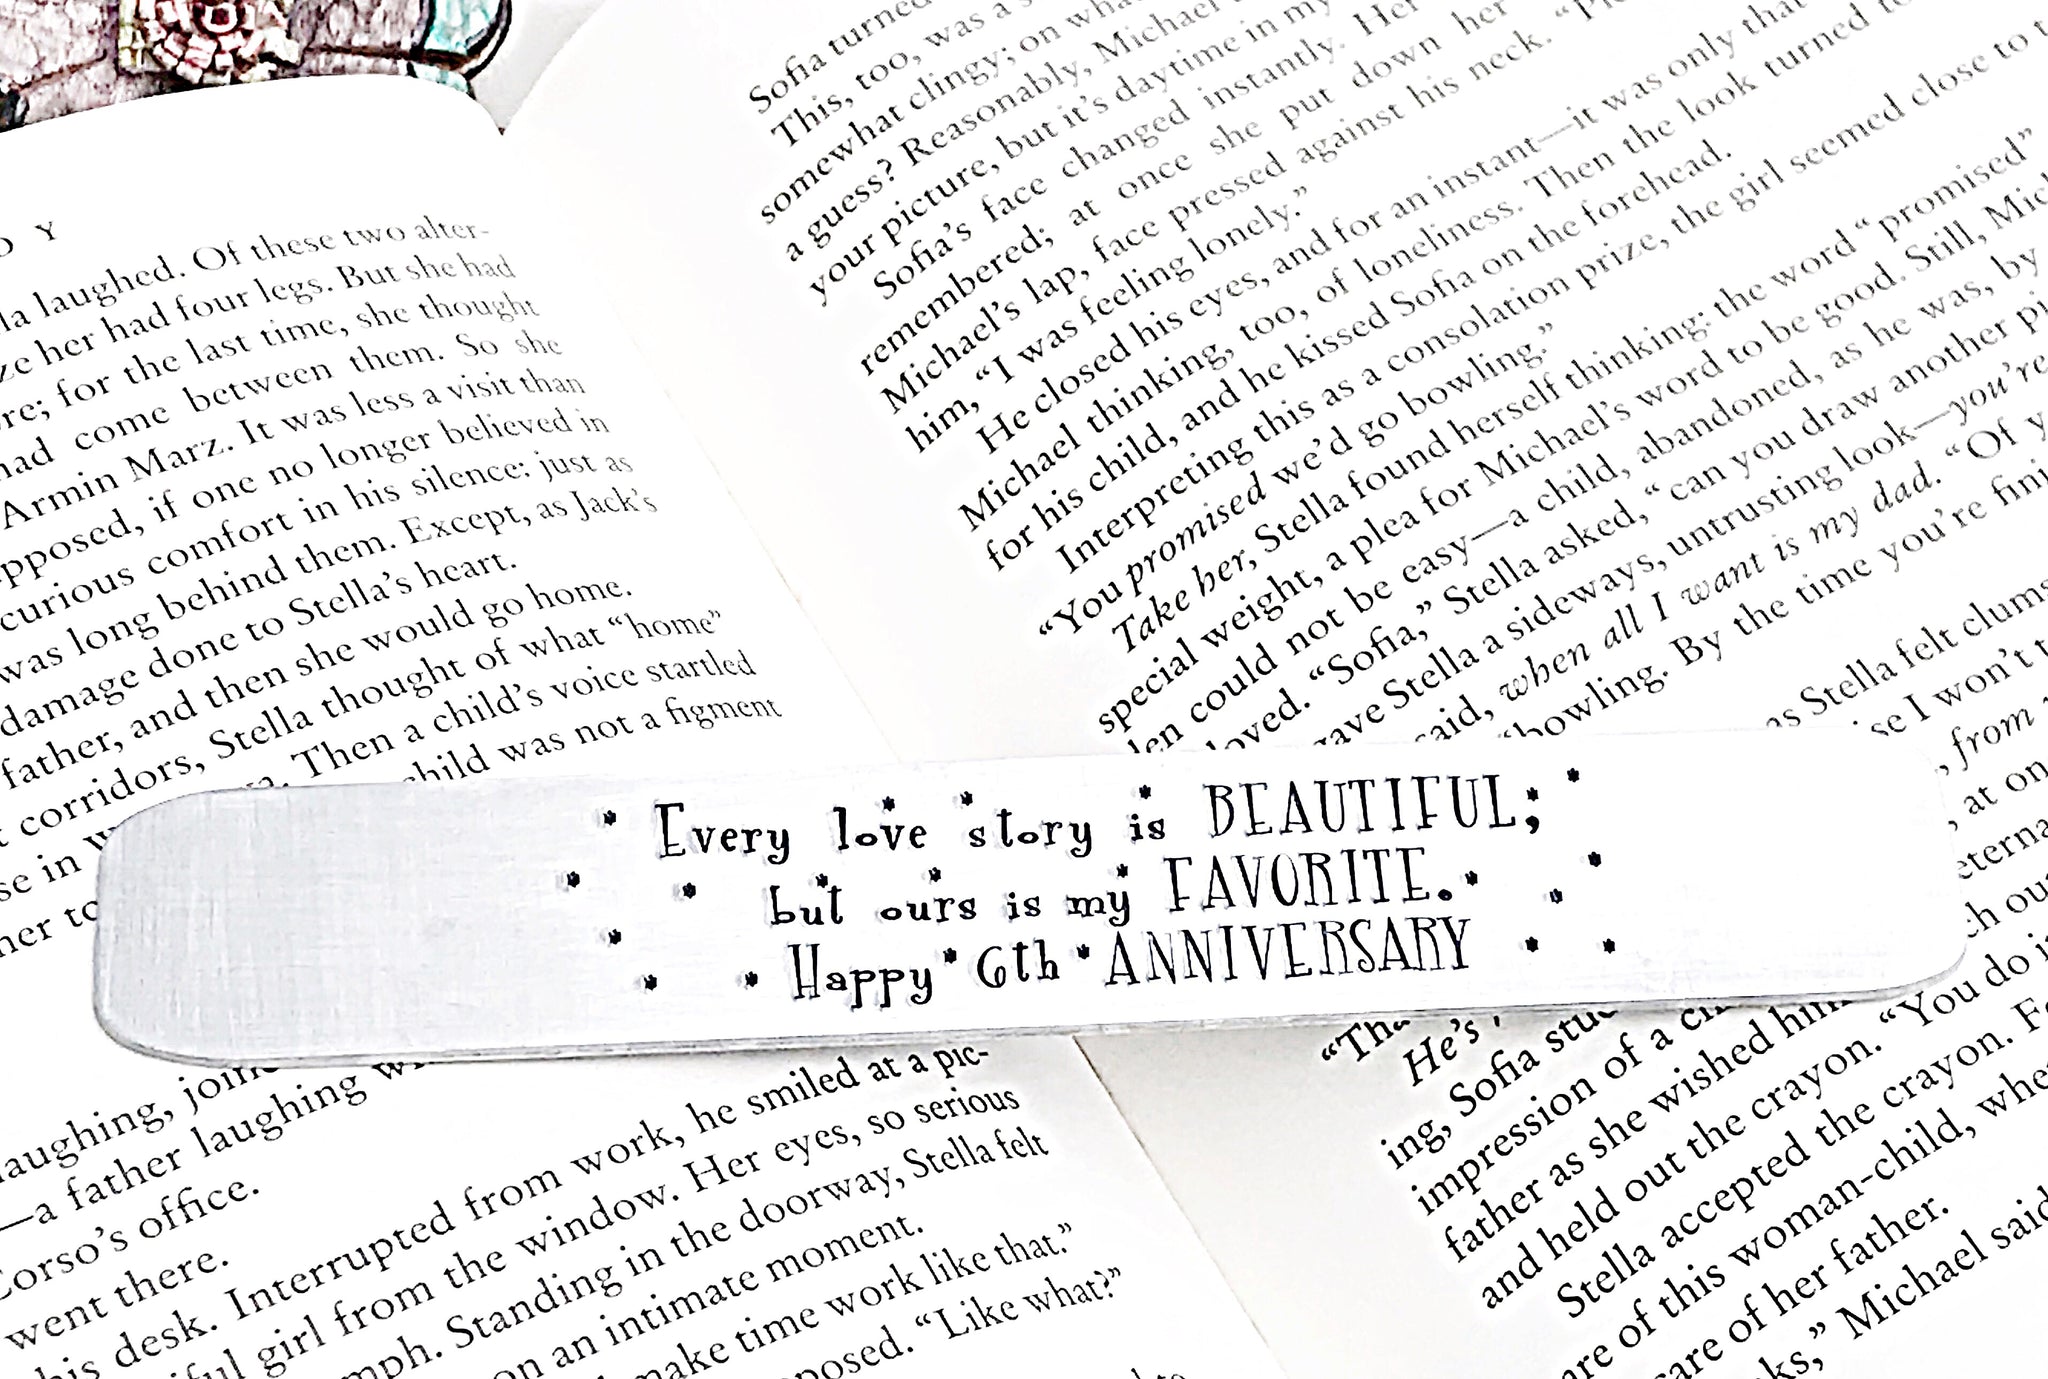 Y
la laughed. Of these two alter-
ze her had four legs. But she had
re; for the last time, she thought
had come between them. So she
Armin Marz. It was less a visit than
pposed, if one no longer believed in
curious comfort in his silence: just as
was long behind them. Except, as Jack's
damage done to Stella's heart.
father, and then she would go home.
corridors, Stella thought of what "home"
Then a child's voice startled
child was not a figment
se in
her to
laughing,
—a father laughing
Corso's office.
went there.
his desk. Interrupted from work, he smiled at a pic-
ful girl from the window. Her eyes, so serious
mph. Standing in the doorway, Stella felt
on an intimate moment.
make time work like that."
pposed. "Like what?"
Sofia turned
This, too, was a
somewhat clingy; on what
a guess? Reasonably, Michael
your picture, but it's daytime in my
Sofia's face changed instantly. Her
remembered; at once she put down her
Michael's lap, face pressed against his neck.
him, "I was feeling lonely."
He closed his eyes, and for an instant—it was only that
Michael thinking, too, of loneliness. Then the look turned
for his child, and he kissed Sofia on the forehead.
Interpreting this as a consolation prize, the girl seemed close to
"You promised we'd go bowling."
Take her, Stella found herself thinking: the word "promised"
special weight, a plea for Michael's word to be good. Still,
len could not be easy—a child, abandoned, as he was, by
loved. "Sofia," Stella asked, "can you draw another
gave Stella a sideways, untrusting look—you're
said, when all I want is my dad. "Of
bowling. By the time you're
as Stella felt
se I won't
from
at on
Every love story is BEAUTIFUL;
but ours is my FAVORITE.
Happy 6th ANNIVERSARY
He's
ing, Sofia
impression of a
father as she wished him "You do
and held out the crayon.
Stella accepted the crayon.
are of this woman-child,
care of her father.
Michael said